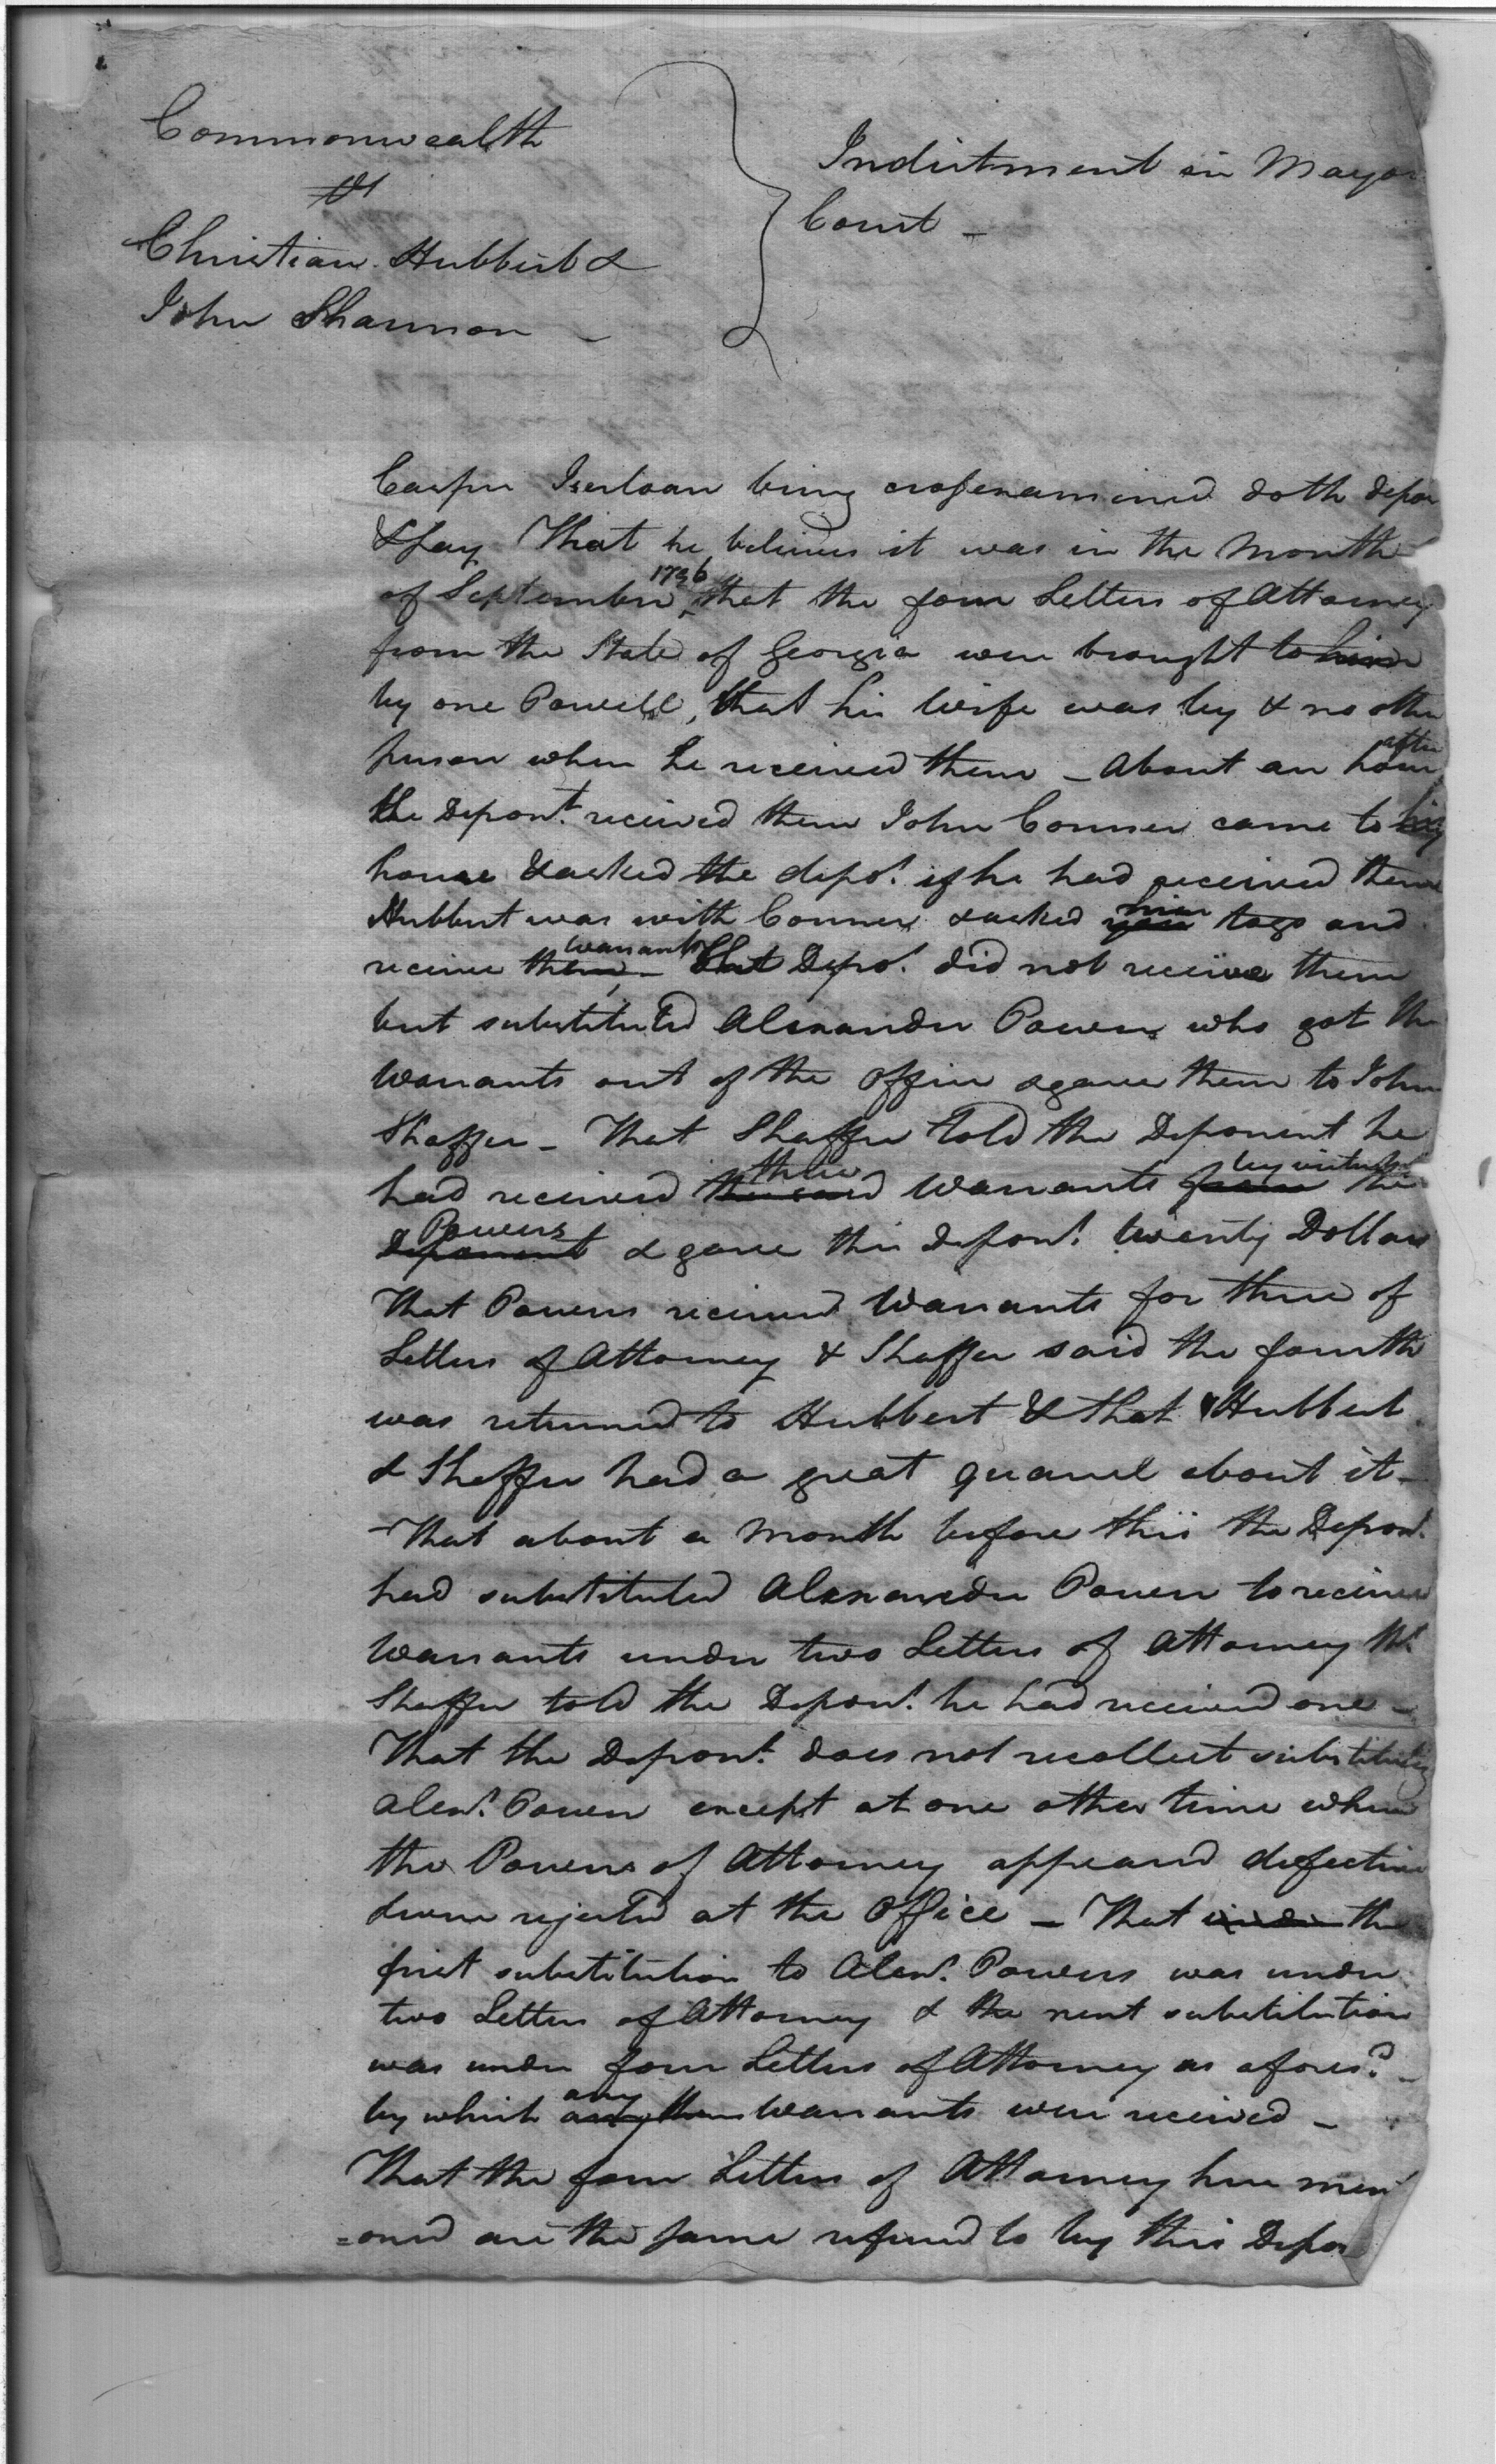 Commonwealth
vs
Christian Hubbert &
John Shannon
Indictment in Mayor
Court -
Casper Iserloan being crossexamined doth depo
& say That he believes it was in the Month
of September 1796 that the four Letters of Attorney
from the State of Georgia were brought to him
by one Powell, that his Wife was by & no other
person when he received them - About an hour after
the Depont. received them John Conner came to his
house & asked the depot. if he had received them
Hubbert was with Conner & asked you him to go and
receive them warrants - But Depot. did not receive them
but substituted Alexander Power who got the
Warrants out of the Office & gave them to John
Shaffer - That Shaffer told the Deponent he
had received the said three Warrants from by virtue of the
Deponent Powers & gave this Depont. twenty Dollars
That Powers received Warrants for three of
Letters of Attorney & Shaffer said the fourth
was returned to Hubbert & that Hubbert
& Shaffer had a great quarrel about it -
That about a Month before this the Depont.
had substituted Alexander Power to receive
Warrants under two Letters of Attorney that
Shaffer told the Depont. he had received one -
That the Depont. does not recollect substituting
Alexr. Power except at one other time when
the Powers of Attorney appeared defective
& were rejected at the Office - That under the
first substitution to Alexr. Powers was under
two Letters of Attorney & the next substitution
was under four Letters of Attorney as aforesd. -
by which any Warrants were received -
That the four Letters of Attorney here men
=oned are the same refered to by this Depo